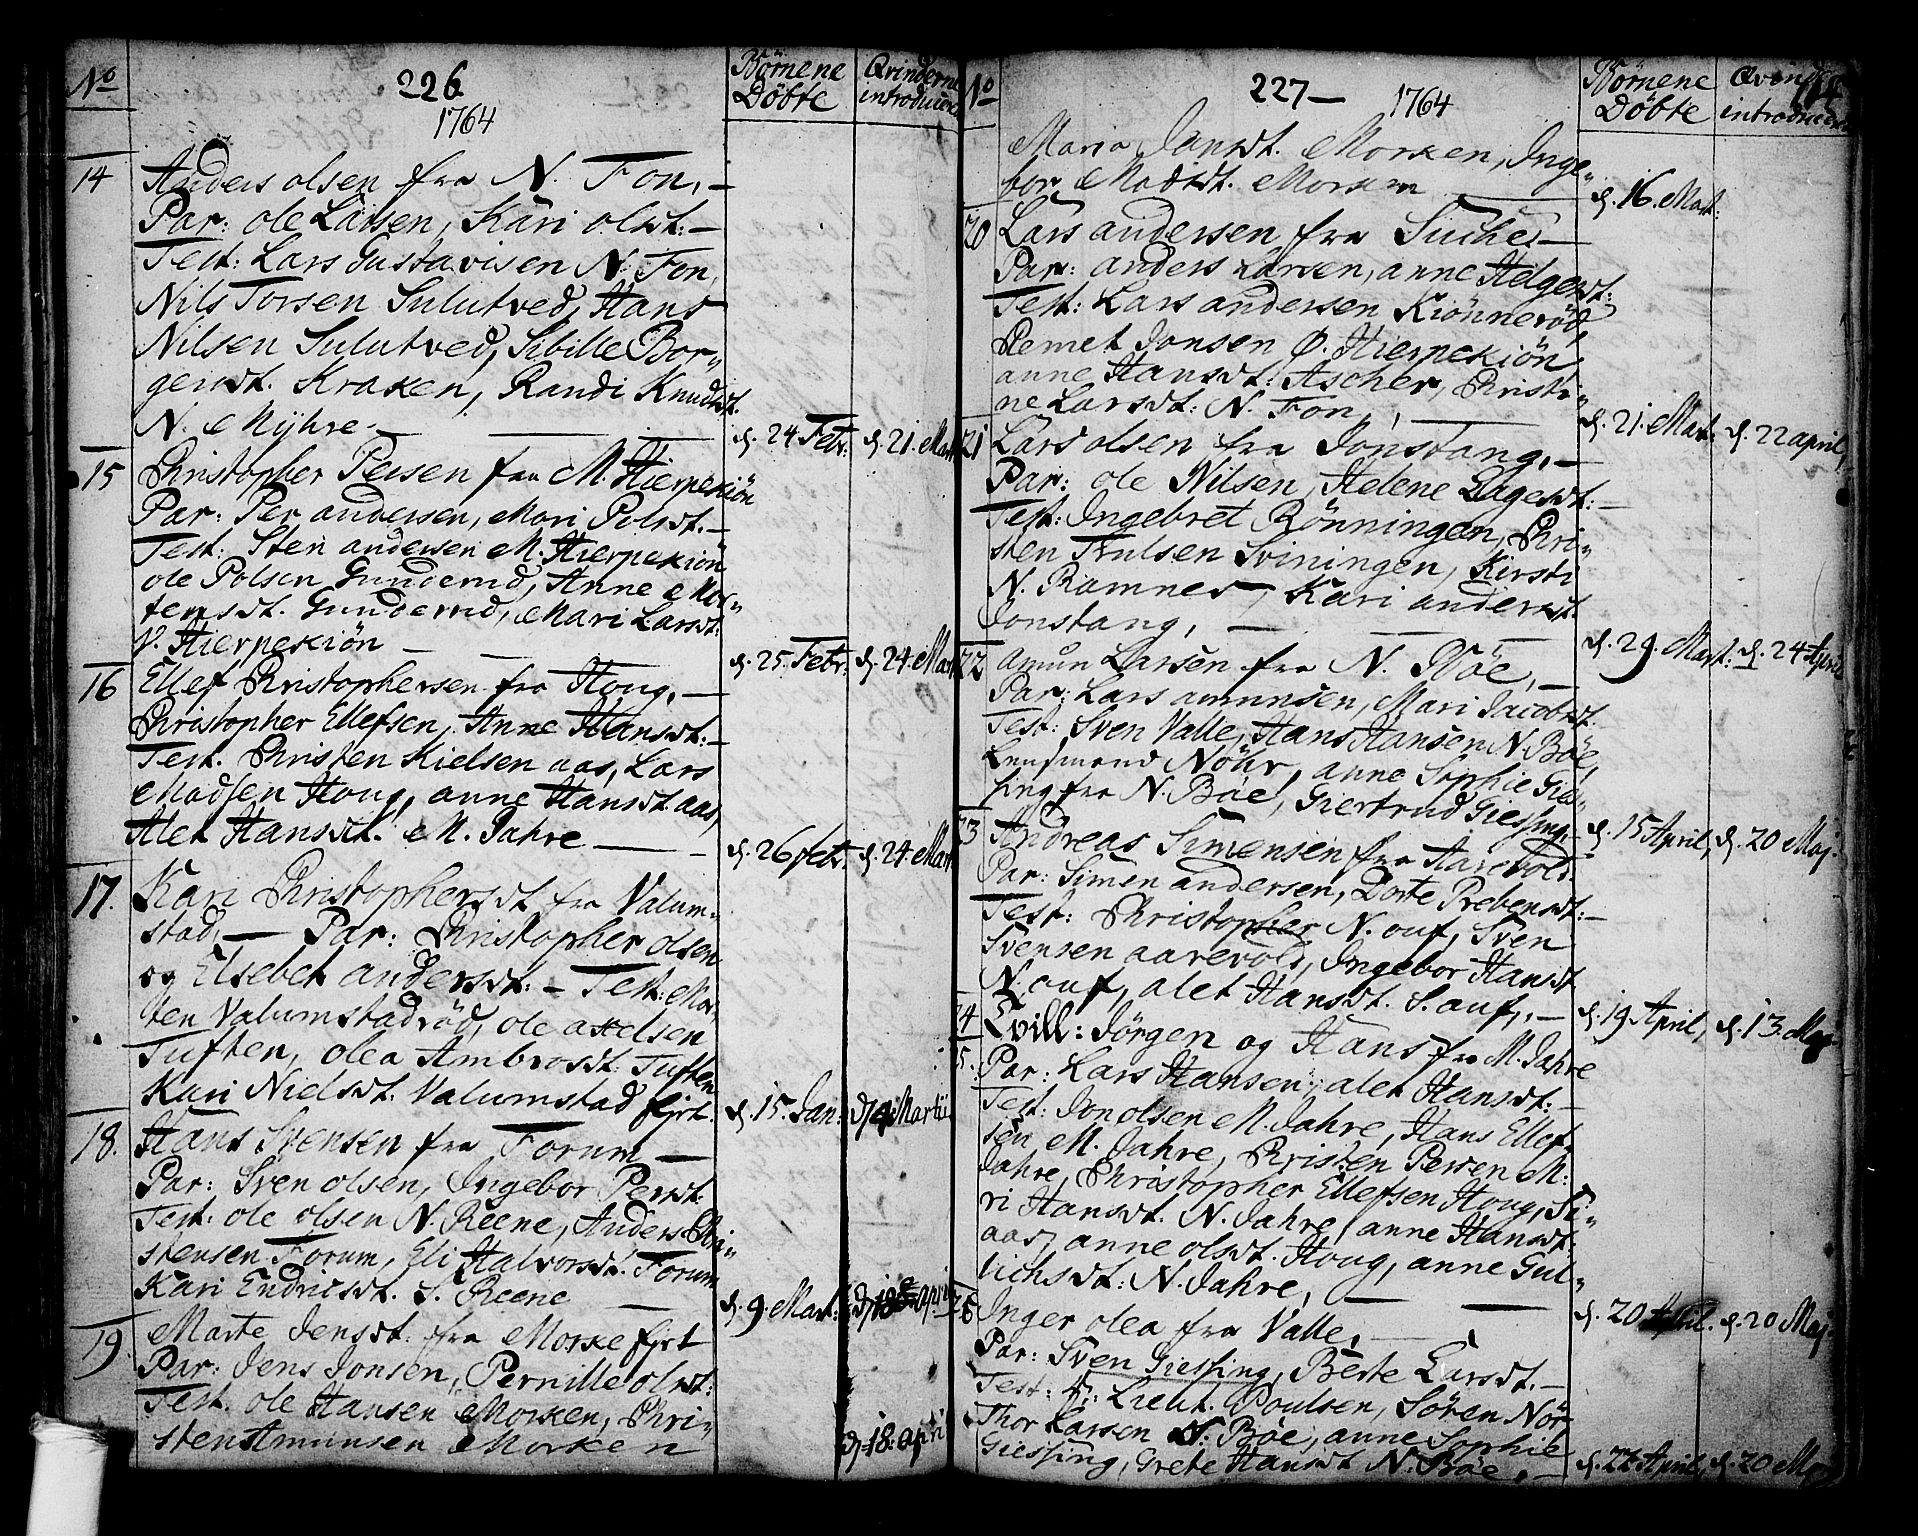 No
226
1764
Børnene Døbte
Qvinderne introducere
14
Anders olsen fra N. Fon, —
Par: ole Larsen, Kari olsdt: —
Test: Lars Gustavisen N. Fon,
Nils Torsen Sulutved, Hans
Nilsen Sulutved, Sibille Bor„
gersdt. Kraken, Randi Knudsdt.
N. Myhre. —
d. 24. Febr:
d. 21. Mart
15
Christopher Persen fra M. Hierpekiön
Par: Per andersen, Mari Polsdt. —
Test: Sten andersen M. Hierpekiön
ole Polsen Gunderud, Anne Mor„
tensdt. Gunderud, Mari Larsdt:
V. Hierpekiön — —
d. 25. Febr:
d. 24. Mart
16
Ellef Christophersen fra Houg, —
Christopher Ellefsen, Anne Hansdt: —
Test. Christen Kielsen aas, Lars
Madsen Houg, anne Hansdt. aas,
Alet Hansdt. M. Jahre —
d. 26 febr.
d. 24. Mart
17.
Kari Christophersdt fra Valum„
stad, — Par: Christopher olsen
og Elsebet andersdt: — Test: Mor„
ten Valumstadröd, ole axelsen
Tuften, olea Ambrosdt: Tuften
Kari Nielsdt. Valumstad fjrt.
d. 15. Jan:
d. 4. Martii
18.
Hans Svensen fra Forum —
Par: Sven olsen, Ingebor Persdt.
Test: ole olsen N. Reene, Anders Chri„
stensen Forum, Eli Halvorsdt. Forum
Kari Endricsdt. S. Reene —
d. 9. Mart:
d. 18. april
19.
Marte Jensdt: fra Morke fjrt
Par: Jens Jonsen, Pernille olsdt:
Test. ole Hansen Morken, Chri„
sten Amunsen Morken
d. 18. april
No
227 —
1764
Børnene Døbte
Qvinderne introducere
Maria Jansdt. Morken, Inge„
bor Madsdt. Morken —
d. 16. Mart:
20
Lars andersen fra Suche —
Par: anders Larsen, anne Helgesdt:
Test: Lars andersen Kiönneröd,
Remet Jonsen Ø. Hierpekiön
anne Hansdt: Ascher, Christi„
ne Larsdt: N. Fon, —
d. 21. Mart:
d. 22 april,
21
Lars olsen fra Jonstang, —
Par: ole Nilsen, Helene Lagesdt: —
Test: Ingebret Rönningen, Chri„
sten Trulsen Sviningen, Kirsti
N. Ramnes, Kari andersdt.
Jonstang, — — —
d. 29. Mart:
d. 24 April
22
Amun Larsen fra N. Böe, —
Par: Lars amunsen, Mari Jacobsdt.
Test: Sven Valle, Hans Hansen N. Böe,
Lensmand Nöhr, anne Sophie Gies„
sing fra N. Böe, Giertrud Giessing —
d. 15 April,
d. 20 Maj.
23
Andreas Simensen fra Aarevold.
Par: Simen andersen, Dorte Prebensdt: —
Test: Christopher N. auf, Sven
Svensen aarevold, Ingebor Hansdt
N. auf, alet Hansdt. S. auf, —
d. 19 April,
d. 13. Maj.
24
25.
Tvill: Jörgen og Hans fra M. Jahre
Par: Lars Hansen, alet Hansdt: —
Test: Jon olsen M. Jahre, Hans Ellef„
sen M. Jahre, Christen Persen M.
Jahre, Christopher Ellefsen Houg, Si„
ri Hansdt. N. Jahre, anne Hansdt.
aas, anne olsdt. Houg, anne Gul„
lichsdt: N. Jahre, — —
d. 20 April.
d. 20 Maj.
26
Inger olea fra Valle, —
Par: Sven Giessing, Beate Larsdt. —
Test: Lieut. Poulsen, Sören Nör,
Thor Larsen N. Böe, anne Sophie
Giessing, Grete Hansdt N. Böe, —
d. 22 April,
d. 20 Maj